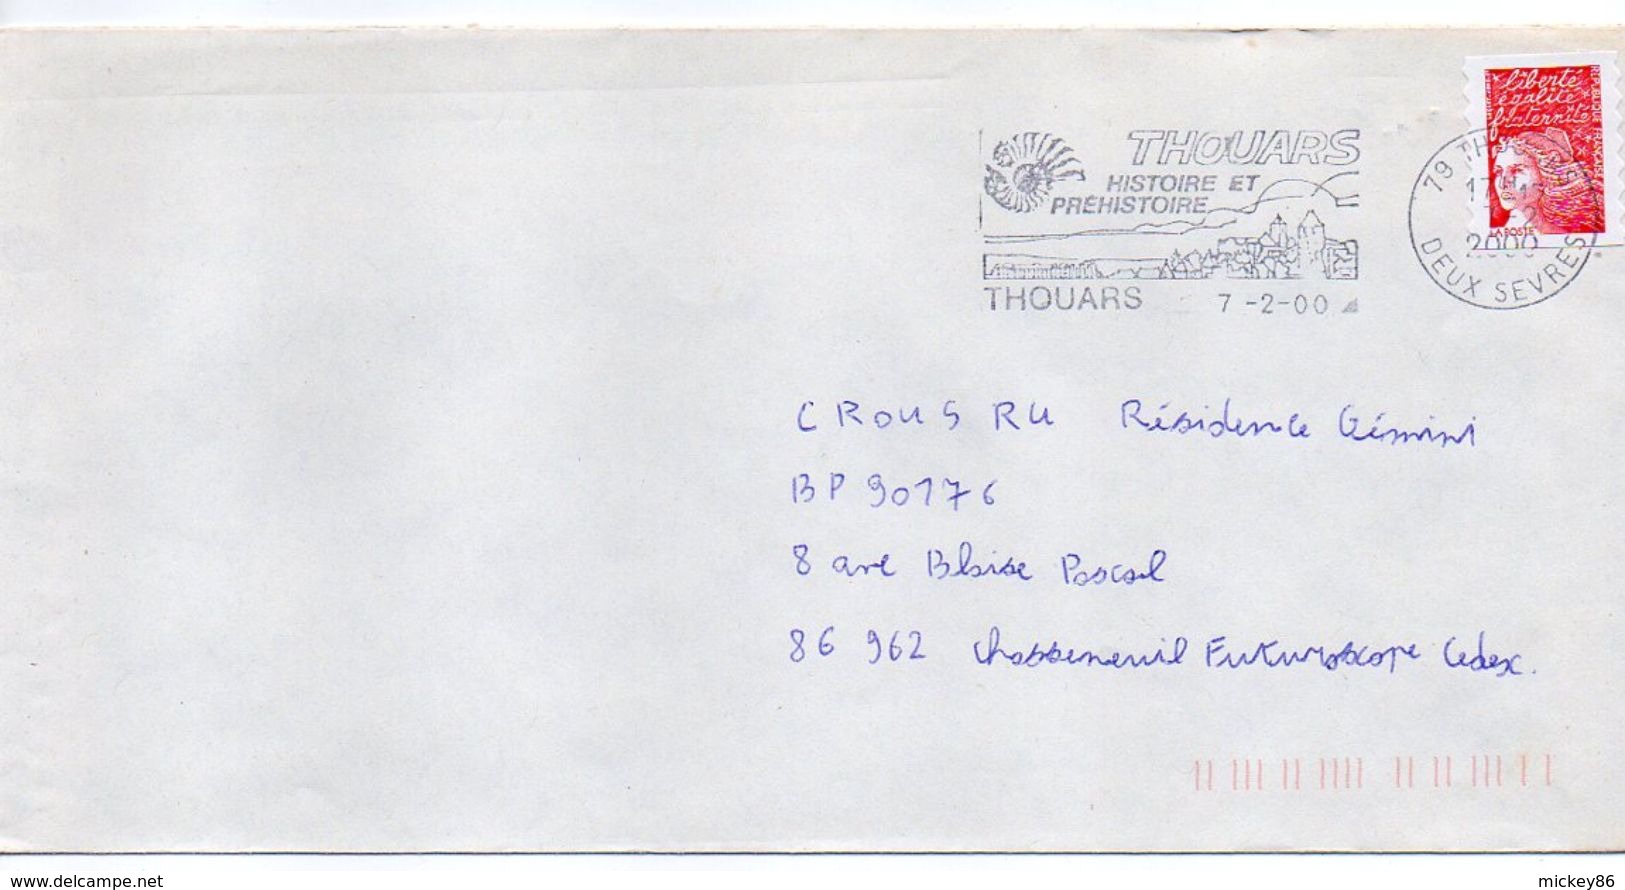 THOUARS
HISTOIRE ET
PRÉHISTOIRE
THOUARS 7-2-00
liberté
égalité
fraternité
REPUBLIQUE FRANÇAISE
LA POSTE
79 THOUARS
17H
2000
DEUX SEVRES
CROUS RU Résidence Gémini
BP 90176
8 ave Blaise Pascal
86 962 Chasseneuil Futuroscope Cedex.
www.delcampe.net
mickey86